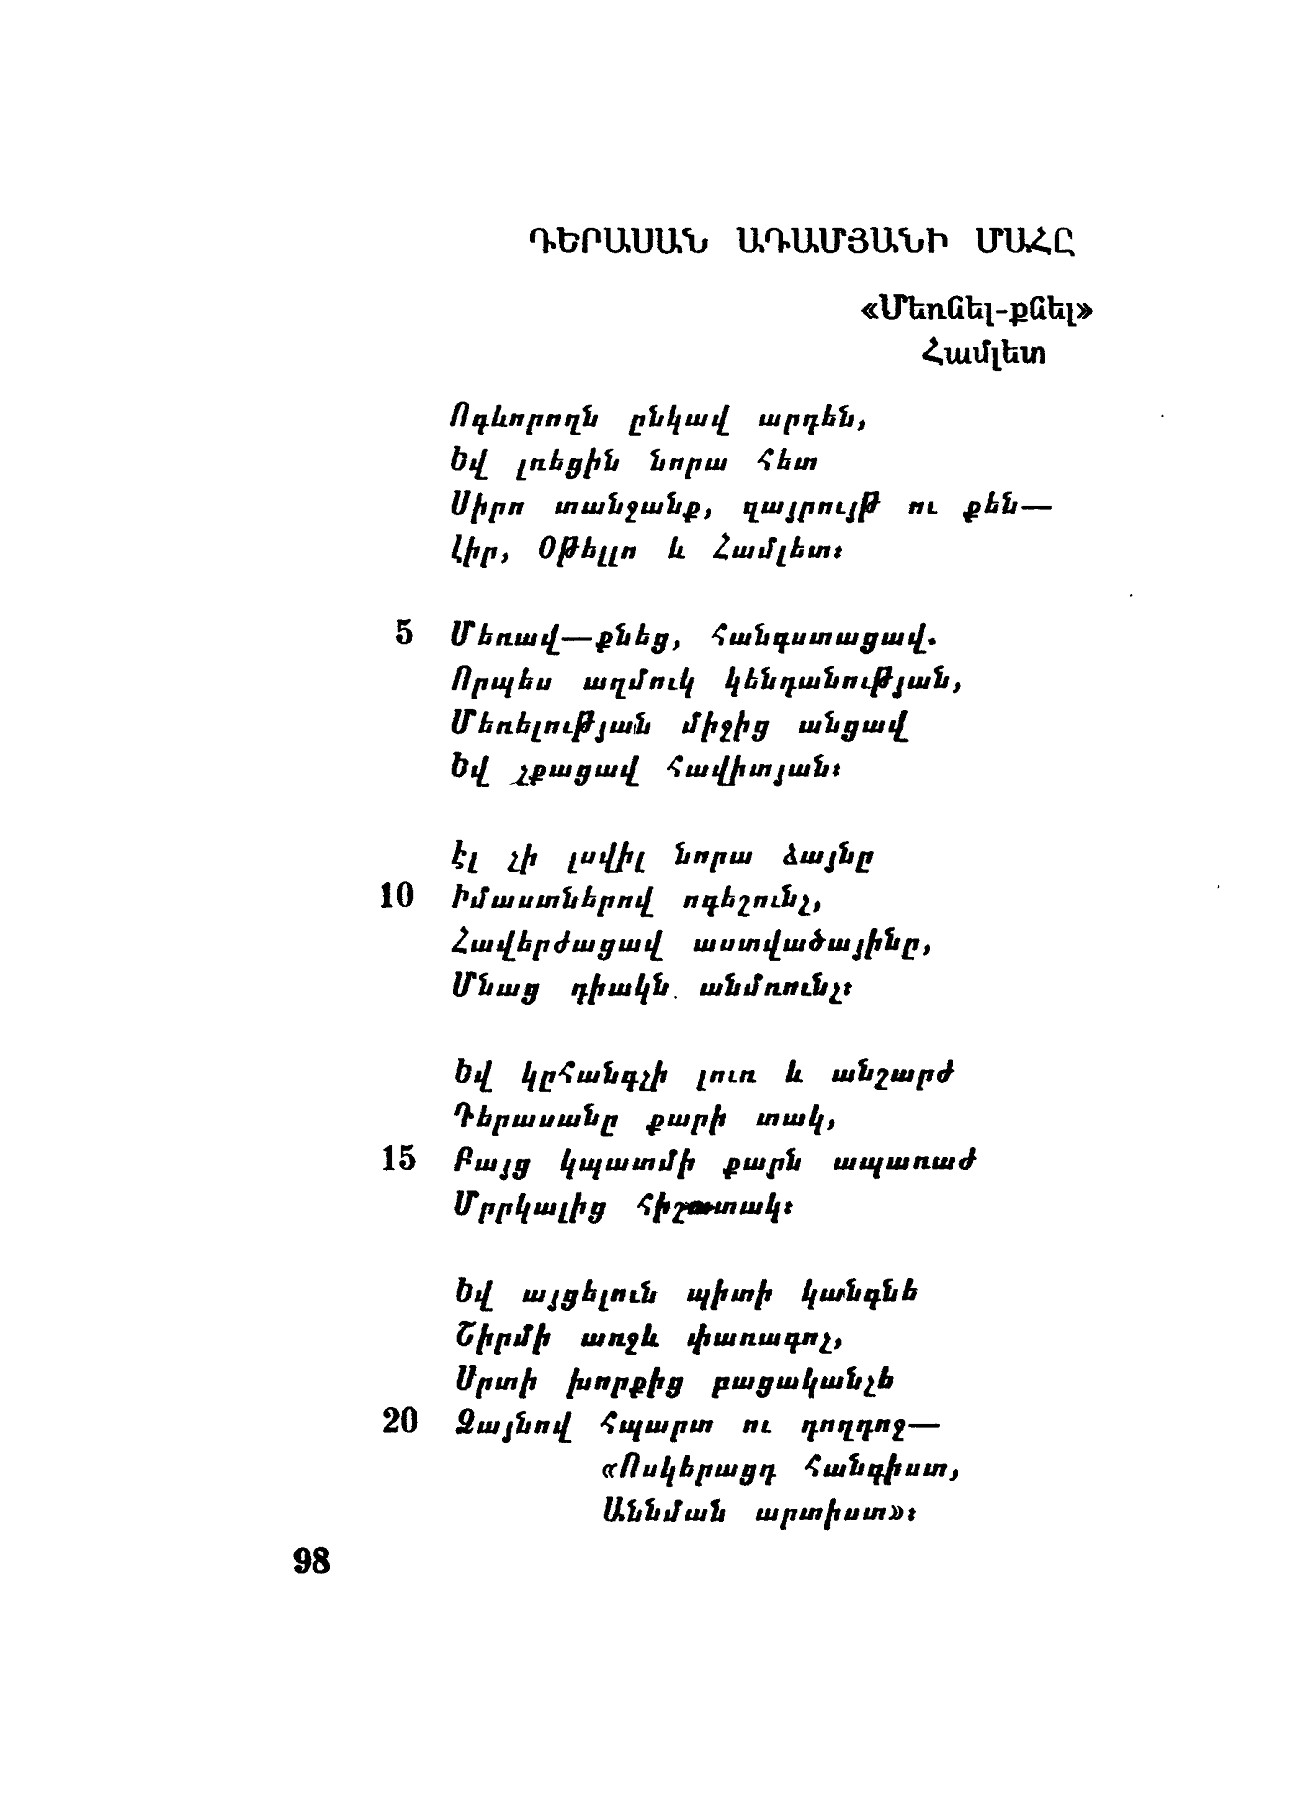 ԴԵՐԱՍԱՆ ԱԴԱՄՅԱՆԻ ՄԱՀԸ
«Մեռնել-քնել»
Համլետ
Ոգևորողն ընկավ արդեն,
Եվ լռեցին նորա հետ
Սիրո տանջանք, զայրույթ ու քեն—
Լիր, Օթելլո և Համլետ։
5 Մեռավ—քնեց, հանգստացավ.
Որպես աղմուկ կենդանության,
Մեռելության միջից անցավ
Եվ չքացավ հավիտյան։
Էլ չի լսվիլ նորա ձայնը
10 Իմաստներով ոգեշունչ,
Հավերժացավ աստվածայինը,
Մնաց դիակն անմռունչ։
Եվ կըհանգչի լուռ և անշարժ
Դերասանը քարի տակ,
15 Բայց կպատմի քարն ապառաժ
Մրրկալից հիշատակ։
Եվ այցելուն պիտի կանգնե
Շիրմի առջև փառագոչ,
Սրտի խորքից բացականչե
20 Ձայնով հպարտ ու դողդոջ—
«Ոսկերացդ հանգիստ,
Աննման արտիստ»։
98